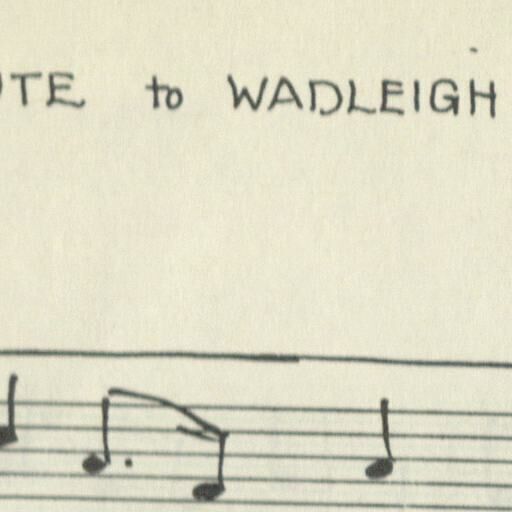 TE to WADLEIGH